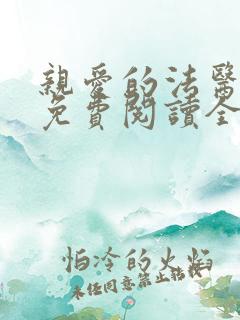 親愛的法醫
免費閱讀全
怕冷的火焰
未經同意禁止轉載